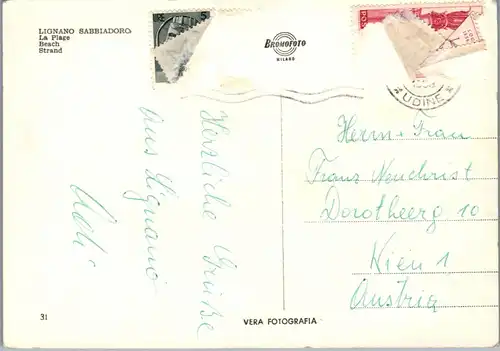 LIGNANO SABBIADORO
La Plage
Beach
Strand
BROMOFOTO
MILANO
UDINE
Herzliche Grüße
aus Lignano
Herrn + Frau
Franz Neuchrist
Dorotheerg 10
Wien 1
Austria
31
VERA FOTOGRAFIA